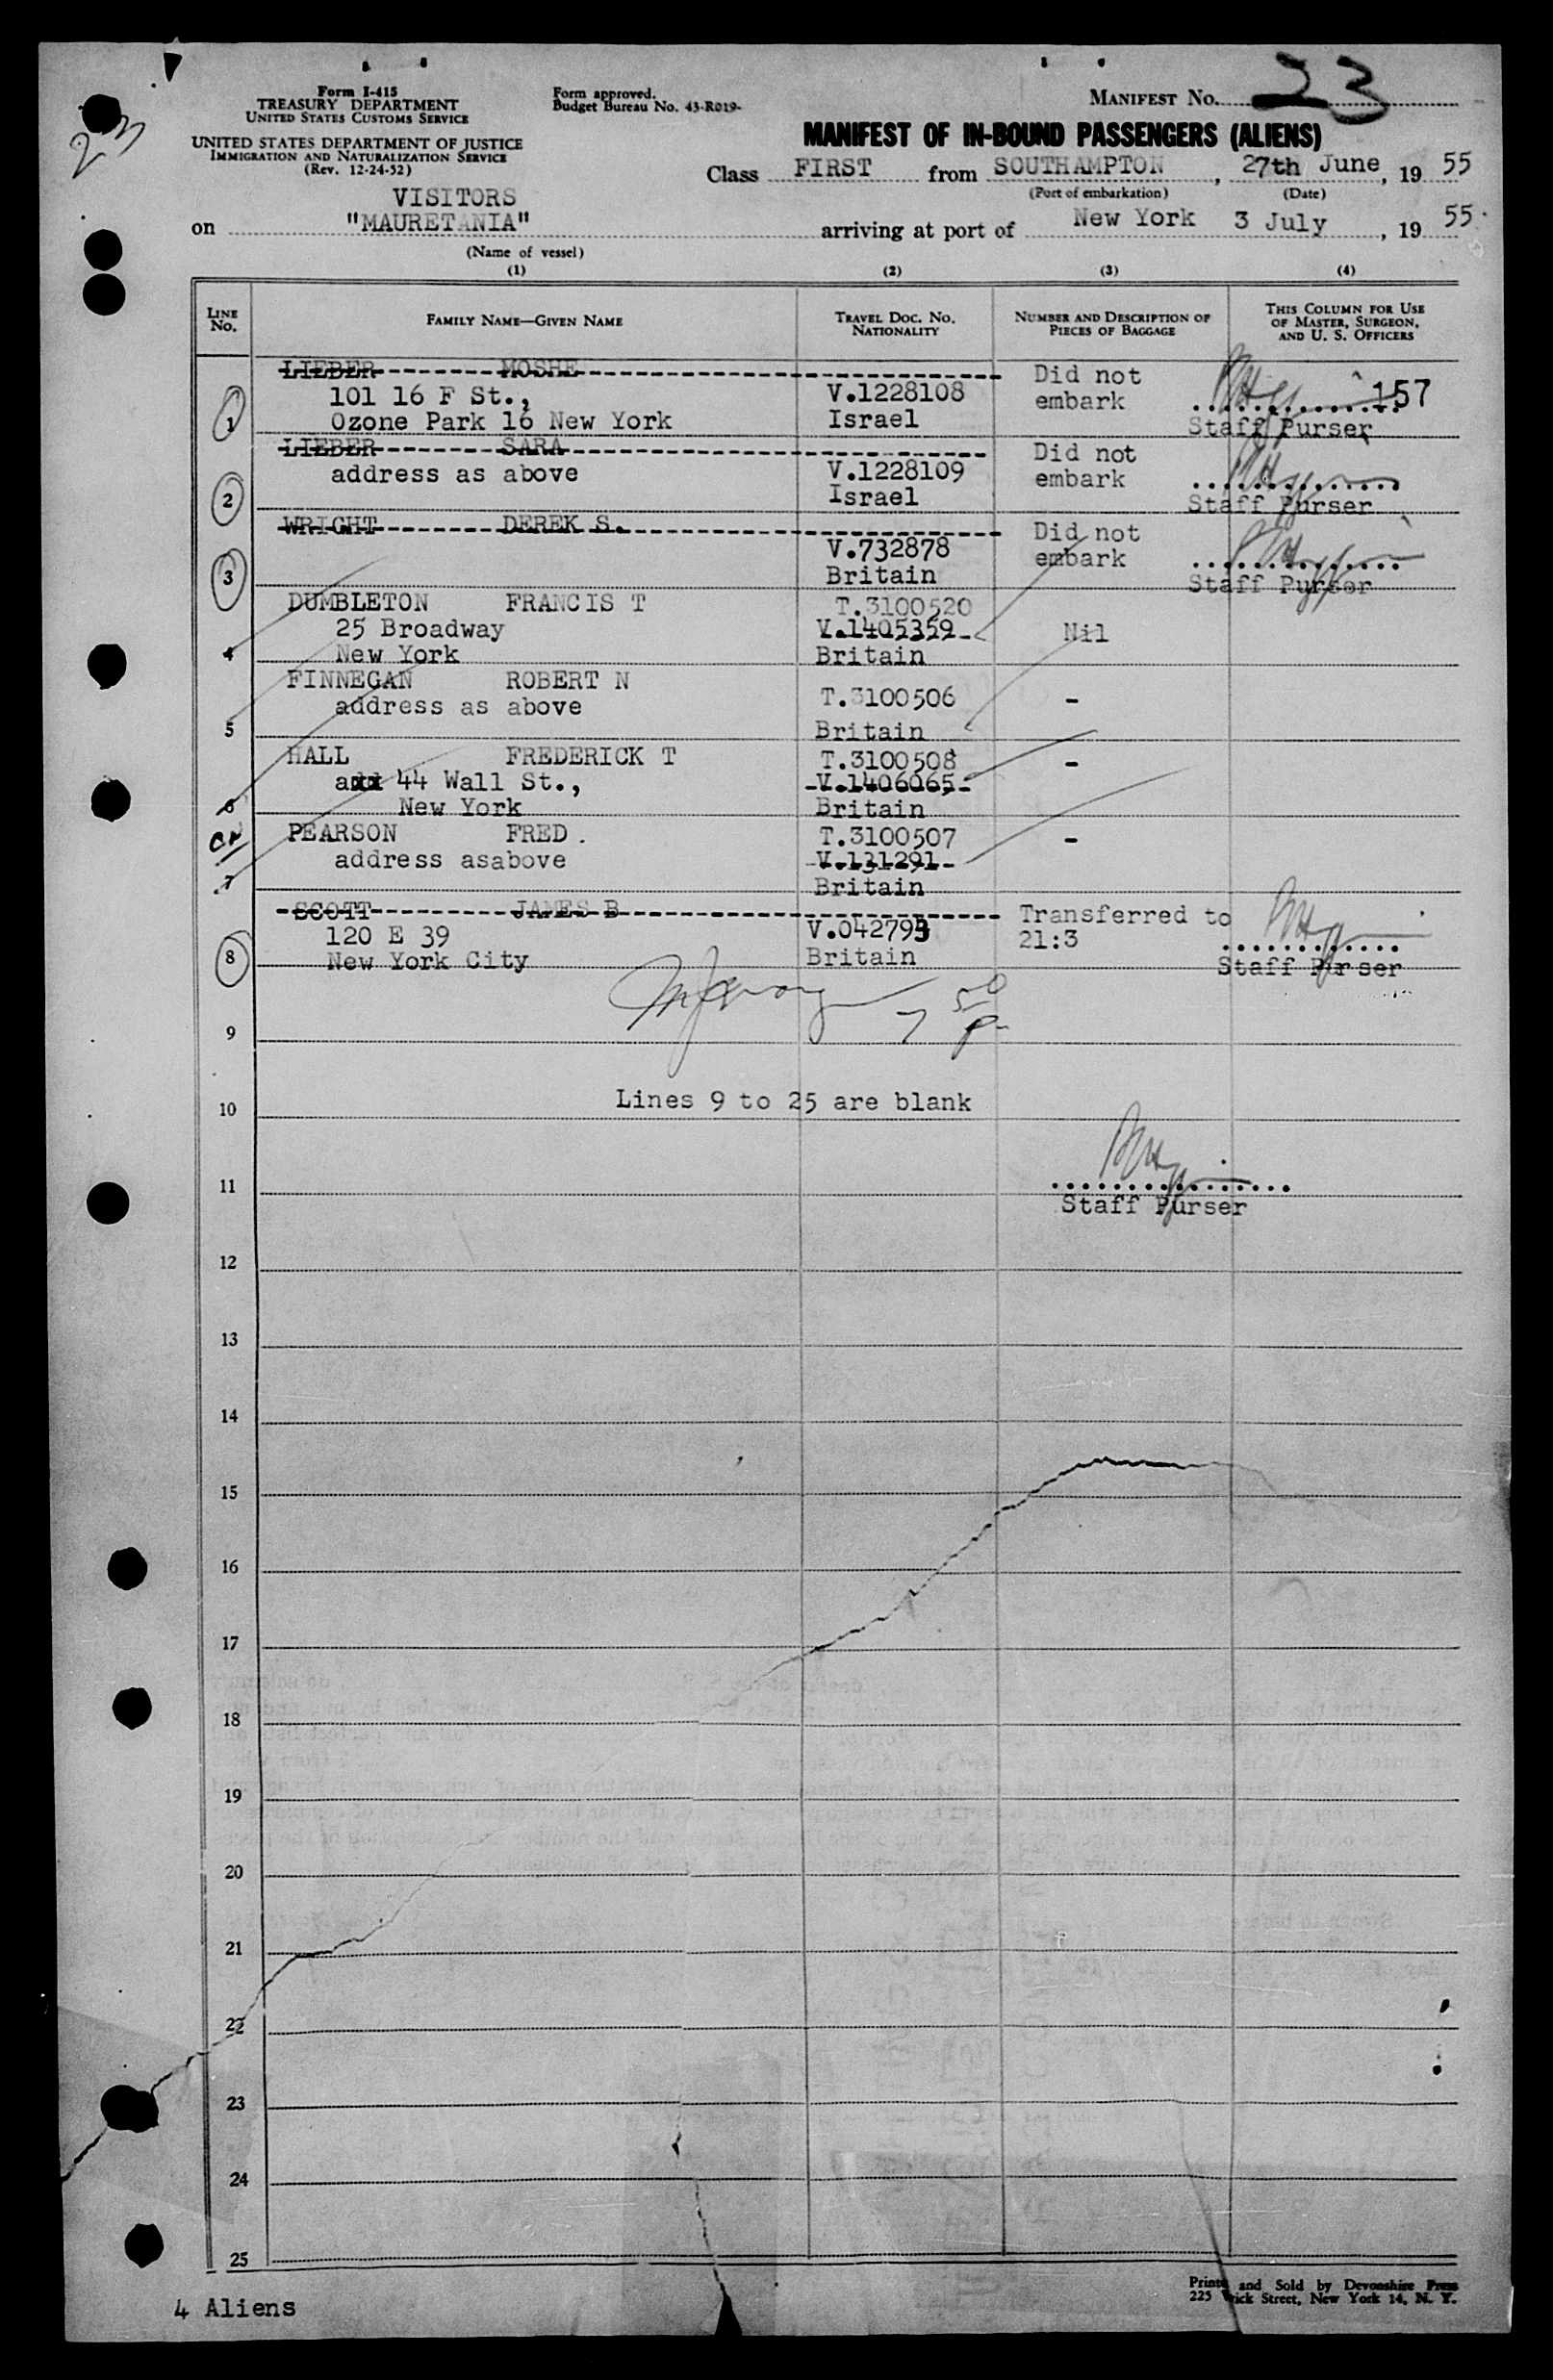 23
Form I-415
TREASURY DEPARTMENT
UNITED STATES CUSTOMS SERVICE
UNITED STATES DEPARTMENT OF JUSTICE
IMMIGRATION AND NATURALIZATION SERVICE
(Rev. 12-24-52)
Form approved.
Budget Bureau No. 43-R019-
MANIFEST No. 23
MANIFEST OF IN-BOUND PASSENGERS (ALIENS)
Class FIRST from SOUTHAMPTON, 27th June, 19 55
(Port of embarkation) (Date)
VISITORS
on "MAURETANIA" arriving at port of New York 3 July, 19 55.
(Name of vessel)
(1) (2) (3) (4)
LINE No. FAMILY NAME—GIVEN NAME TRAVEL DOC. No. NATIONALITY NUMBER AND DESCRIPTION OF PIECES OF BAGGAGE THIS COLUMN FOR USE OF MASTER, SURGEON, AND U. S. OFFICERS
LIEBER MOSHE Did not
101 16 F St., V.1228108 embark 157
1 Ozone Park 16 New York Israel Staff Purser
LIEBER SARA Did not
address as above V.1228109 embark
2 Israel Staff Purser
WRIGHT DEREK S. Did not
V.732878 embark
3 Britain Staff Purser
DUMBLETON FRANCIS T T.3100520
25 Broadway V.1405359 Nil
4 New York Britain
FINNEGAN ROBERT N T.3100506 -
address as above
5 Britain
HALL FREDERICK T T.3100508 -
axx 44 Wall St., V.1406065
6 New York Britain
PEARSON FRED. T.3100507 -
address asabove V.131291
7 Britain
SCOTT JAMES B Transferred to
120 E 39 V.042793 21:3
8 New York City Britain Staff Purser
7 50 P-
9
10 Lines 9 to 25 are blank
11
Staff Purser
12
13
14
15
16
17
18
19
20
21
22
23
24
25
4 Aliens
and Sold by Devonshire Press
225 Street, New York 14, N. Y.